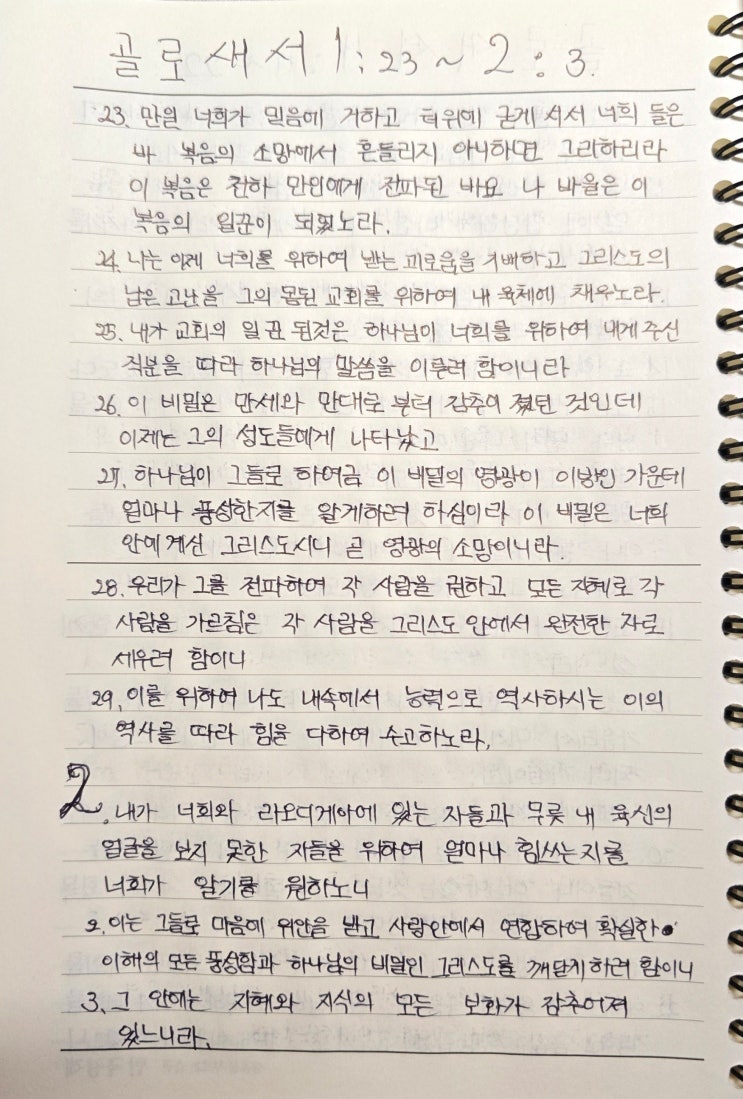 골로새서 1:23~2:3.
23. 만일 너희가 믿음에 거하고 터위에 굳게 서서 너희 들은
바 복음의 소망에서 흔들리지 아니하면 그리하리라
이 복음은 천하 만민에게 전파된 바요 나 바울은 이
복음의 일꾼이 되었노라.
24. 나는 이제 너희를 위하여 받는 괴로움을 기뻐하고 그리스도의
남은 고난을 그의 몸된 교회를 위하여 내 육체에 채우노라.
25. 내가 교회의 일꾼 된것은 하나님이 너희를 위하여 내게 주신
직분을 따라 하나님의 말씀을 이루려 함이니라
26. 이 비밀은 만세와 만대로 부터 감추어 졌던 것인데
이제는 그의 성도들에게 나타났고
27. 하나님이 그들로 하여금 이 비밀의 영광이 이방인 가운데
얼마나 풍성한지를 알게하려 하심이라 이 비밀은 너희
안에 계신 그리스도시니 곧 영광의 소망이니라.
28. 우리가 그를 전파하여 각 사람을 권하고 모든 지혜로 각
사람을 가르침은 각 사람을 그리스도 안에서 완전한 자로
세우려 함이니
29. 이를 위하여 나도 내속에서 능력으로 역사하시는 이의
역사를 따라 힘을 다하여 수고하노라.
2. 내가 너희와 라오디게아에 있는 자들과 무릇 내 육신의
얼굴을 보지 못한 자들을 위하여 얼마나 힘쓰는지를
너희가 알기를 원하노니
2. 이는 그들로 마음에 위안을 받고 사랑안에서 연합하여 확실한
이해의 모든 풍성함과 하나님의 비밀인 그리스도를 깨닫게 하려 함이니
3. 그 안에는 지혜와 지식의 모든 보화가 감추어져
있느니라.